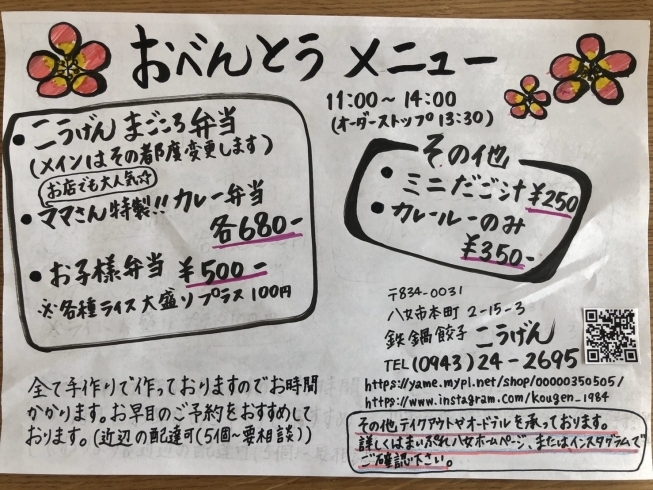 おべんとう メニュー
11:00～14:00
(オーダーストップ 13:30)
● こうげん まごころ弁当
(メインはその都度変更します)
お店でも大人気☆
● ママさん特製!! カレー弁当
各680-
● お子様弁当 ¥500-
※各種ライス大盛りプラス100円
その他
● ミニだご汁 ¥250
● カレールーのみ
¥350-
〒834-0031
八女市本町 2-15-3
鉄鍋餃子 こうげん
TEL (0943)24-2695
https://yame.mypl.net/shop/00000350505/
https://www.instagram.com/kougen_1984
全て手作りで作っておりますのでお時間
かかります。お早目のご予約をおすすめして
おります。(近辺の配達可(5個~要相談))
その他テイクアウトやオードブルを承っております。
詳しくはまいぷれ八女ホームページ、またはインスタグラムで
ご確認下さい。